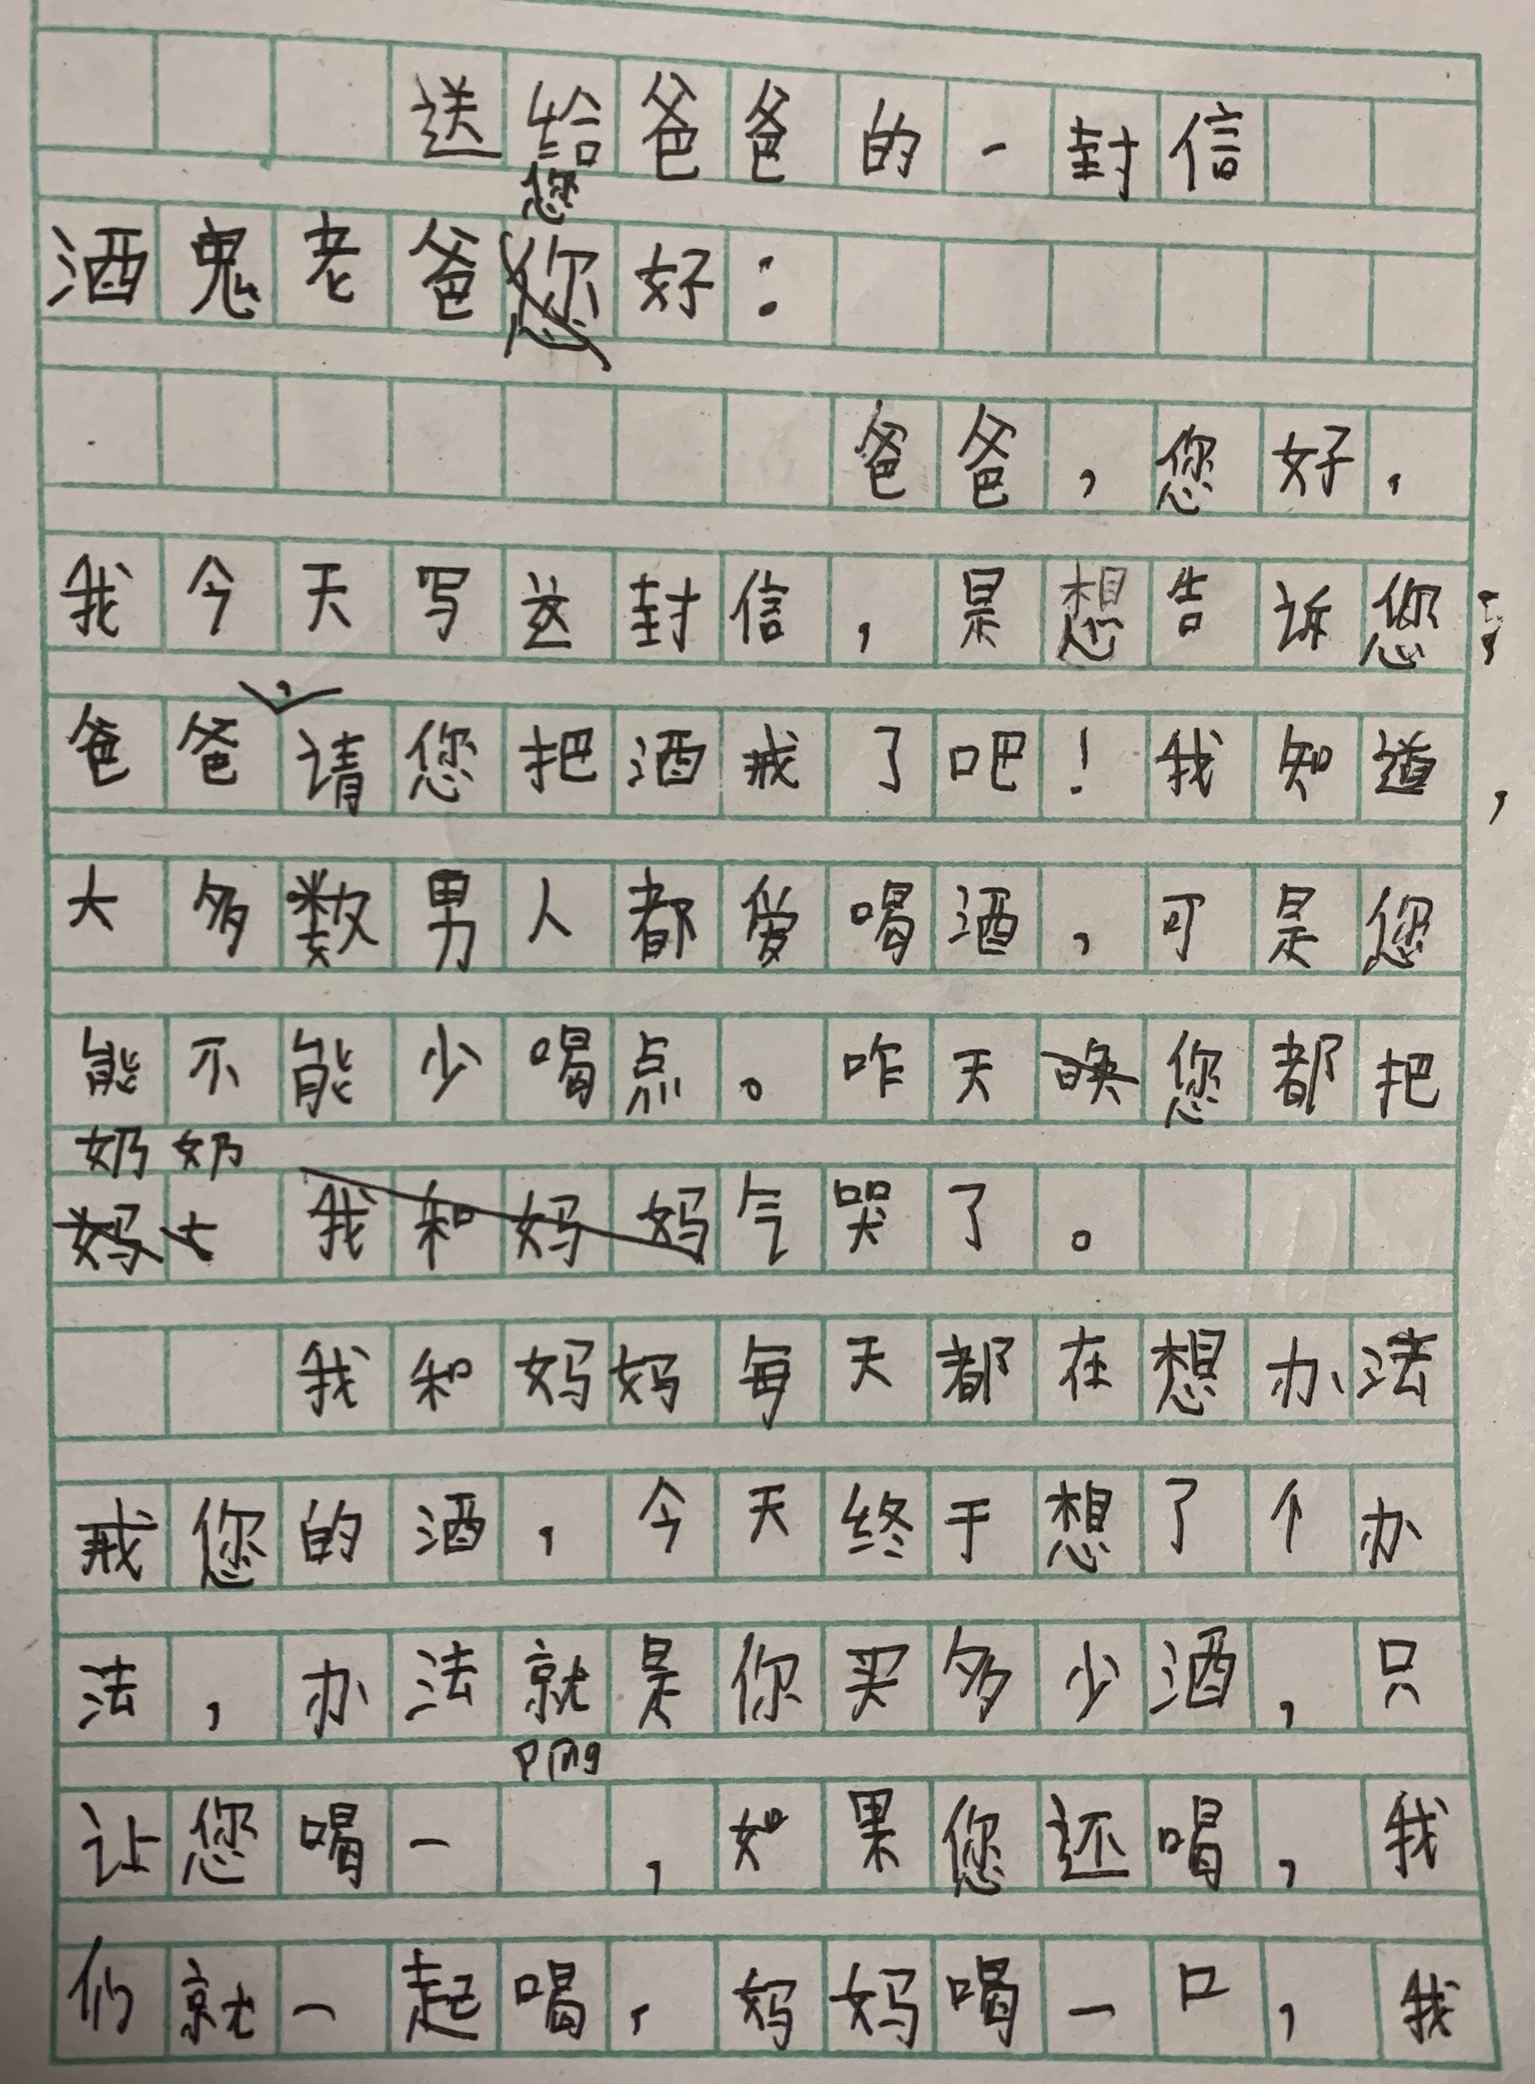 送给爸爸的一封信
酒鬼老爸您好：
爸爸，您好，
我今天写这封信，是想告诉您：
爸爸，请您把酒戒了吧！我知道，
大多数男人都爱喝酒，可是您
能不能少喝点。昨天您都把
奶奶气哭了。
我和妈妈每天都在想办法
戒您的酒，今天终于想了个办
法，办法就是你买多少酒，只
让您喝一ping，如果您还喝，我
们就一起喝，妈妈喝一口，我